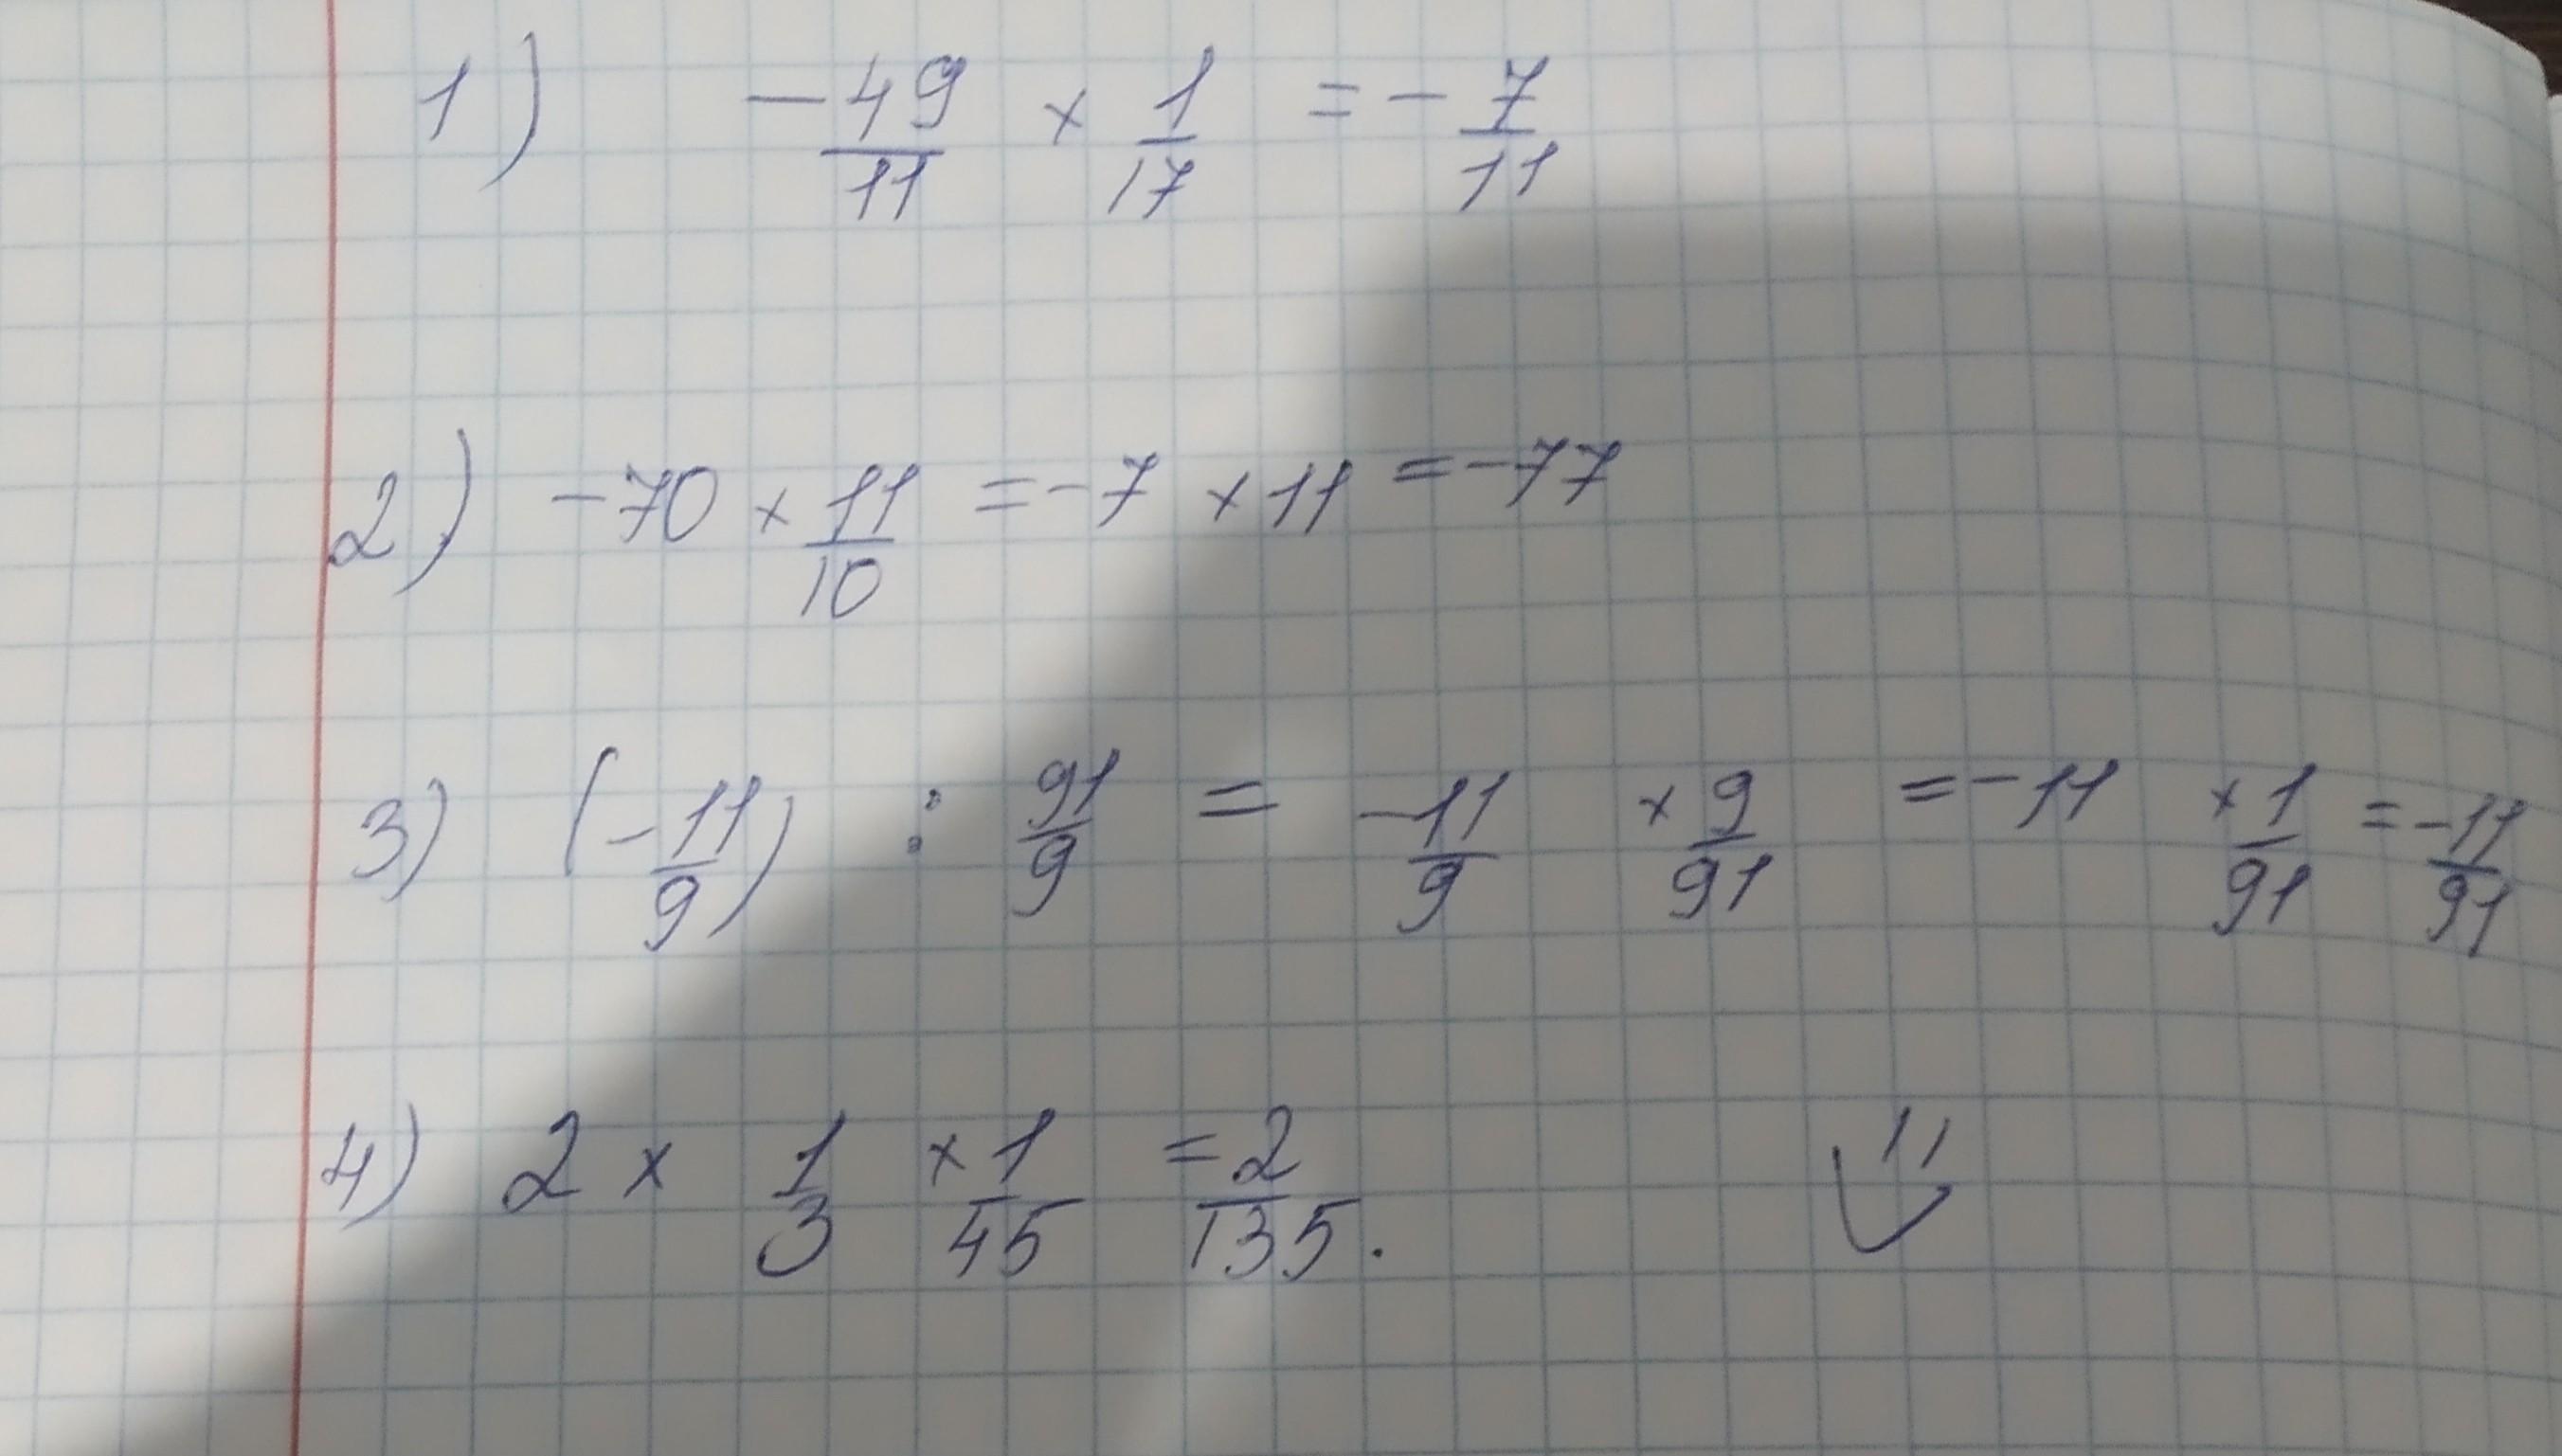 1) -49/11 × 1/17 = -7/11
2) -70 × 11/10 = -7 × 11 = -77
3) (-11/9) : 91/9 = -11/9 × 9/91 = -11 × 1/91 = -11/91
4) 2 × 1/3 × 1/45 = 2/135.